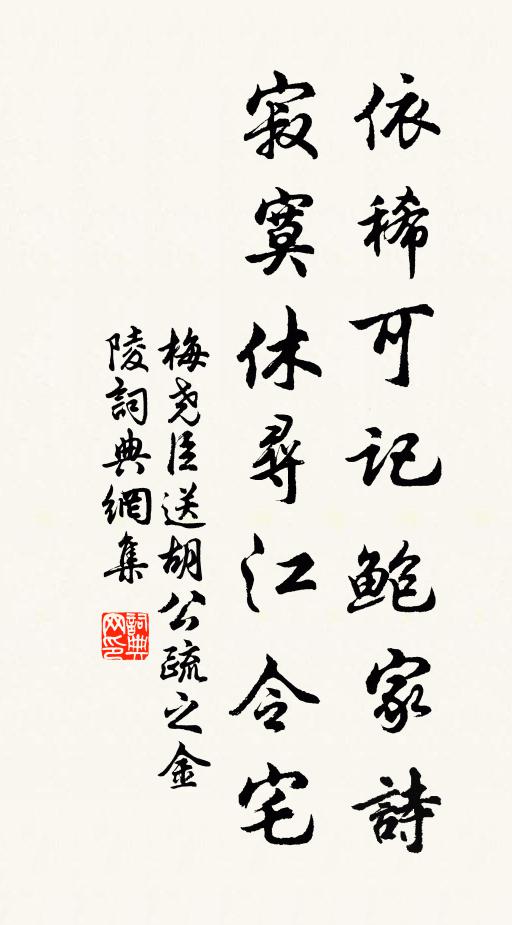 依稀可記鮑家詩
寂寞休尋江令宅
梅尧臣送胡公疏之金
陵詞典網集
詞典网印